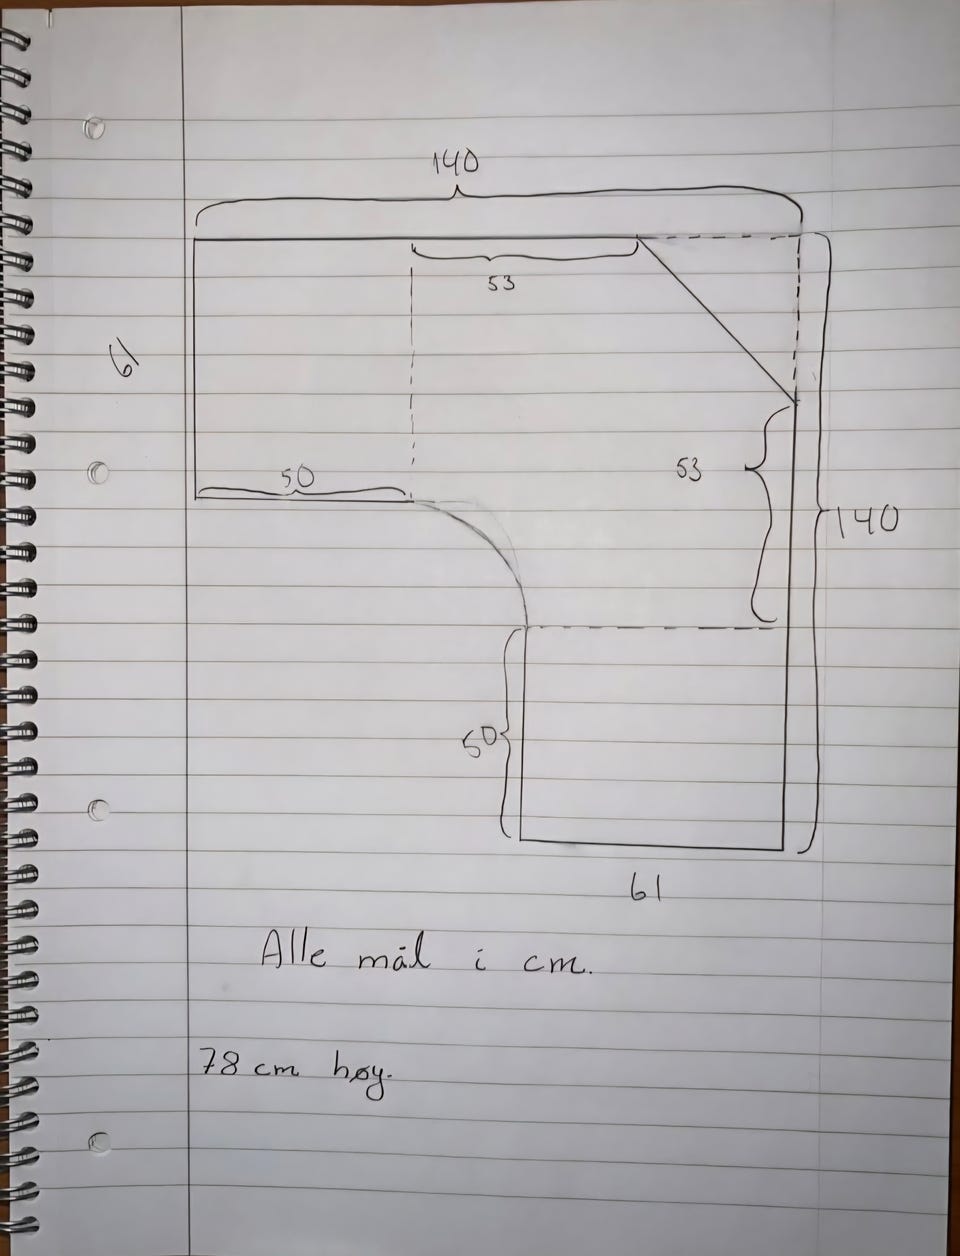 140
53
61
50
53
140
50
61
Alle mål i cm.
78 cm høy.